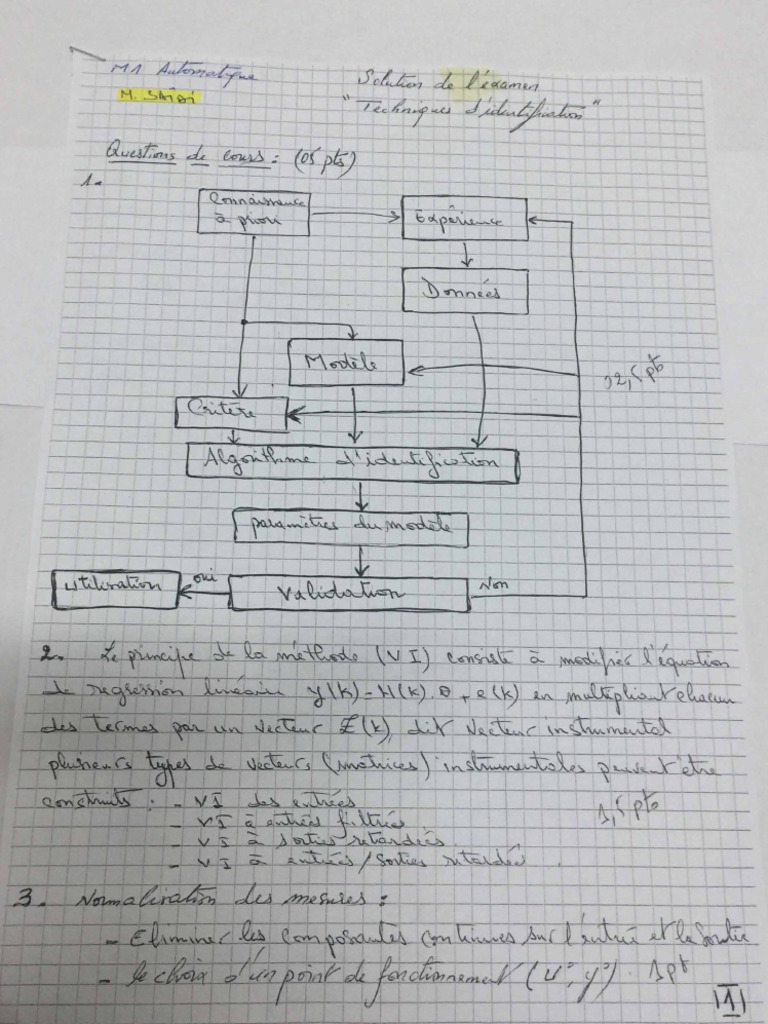 M1 Automatique
Solution de l'examen
M. SAIDI
"Techniques d'identification"
Questions de cours : (05 pts)
1.
Connaissance
à priori
Expérience
Données
Modèle
Critère
2,5 pt
Algorithme d'identification
paramètres du modèle
Utilisation
oui
Validation
Non
2. Le principe de la méthode (VI) consiste à modifier l'équation
de regression linéaire y(k) = H(k).θ + e(k) en multipliant chacun
des termes par un vecteur Z(k), dit vecteur instrumental
plusieurs types de vecteurs (matrices) instrumentales peuvent être
construits : - VI des entrées
- VI à entrées filtrées
1,5 pts
- VI à sorties retardées
- VI à entrées/sorties retardées.
3. Normalisation des mesures :
- Eliminer les composantes continues sur l'entrée et la sortie
- le choix d'un point de fonctionnement (u°, y°). 1pt
|1|